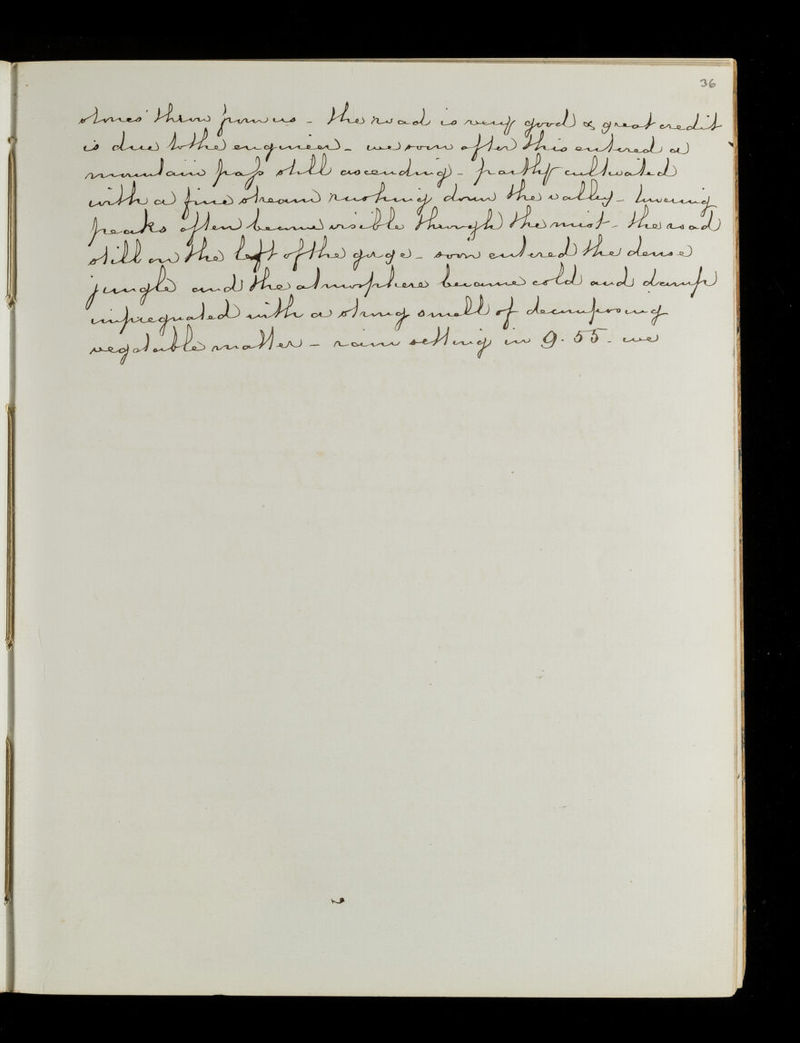 36
stones throw from us - the road is very good & great credit
is due to the engineer - we soon after this entered a
mountain pass still ascending - partly cultivated
with a fine stream rushing down the valley - towering
peaks often became visible through the mist - the road
still on the left of the gorge - soon entered the dense
jungle and the atmosphere became cold and damp
impregnated with a strong smell of decomposing
vegatable matter - rain setting in 9.55. we